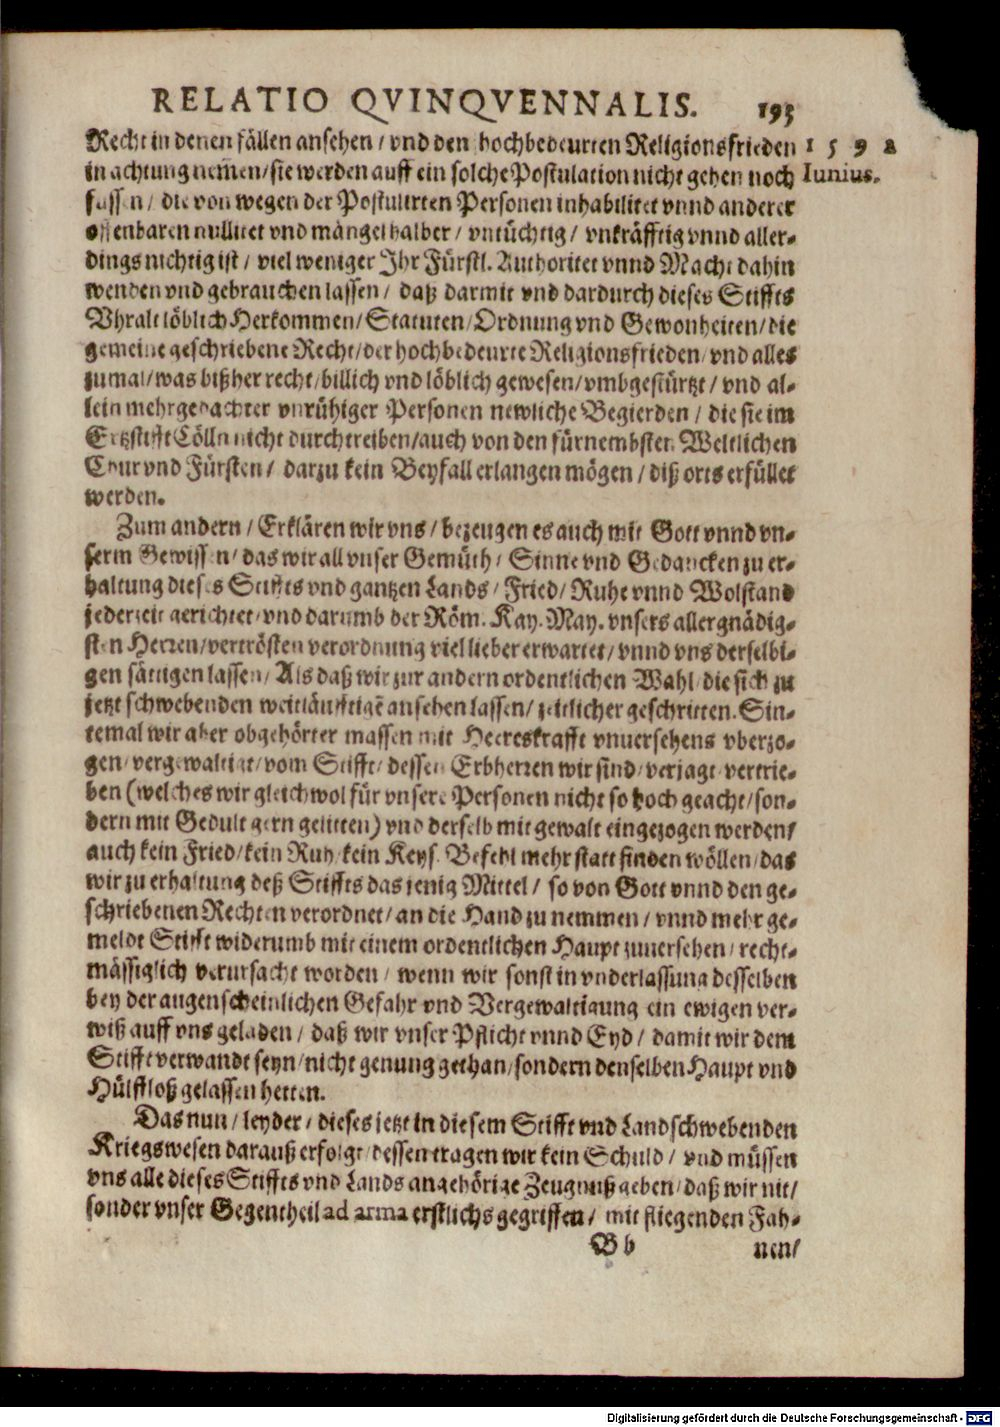 RELATIO QVINQVENNALIS. 193
Recht in denen fällen ansehen / vnd den hochbedeurten Religionsfrieden 1 5 9 2
in achtung nemen/sie werden auff ein solche Postulation nicht gehen noch Iunius.
fussen / die von wegen der Postulirten Personen inhabilitet vnnd anderer
offenbaren nullitet vnd mängel halber / vntüchtig / vnkräfftig vnnd aller-
dings nichtig ist / viel weniger Ihr Fürstl. Authoritet vnnd Macht dahin
wenden vnd gebrauchen lassen / daß darmit vnd dardurch dieses Stiffts
Vhralt löblich Herkommen/ Statuten/ Ordnung vnd Gewonheiten/ die
gemeine geschriebene Recht/ der hochbedeurte Religionsfrieden/ vnd alles
zumal/ was bißher recht/ billich vnd löblich gewesen/ vmbgestürtzt / vnd al-
lein mehrgedachter vnrühiger Personen newliche Begierden / die sie im
Ertzstifft Cölln nicht durchtreiben/auch von den fürnembsten Weltlichen
Chur vnd Fürsten / darzu kein Beyfall erlangen mögen / diß orts erfüllet
werden.
Zum andern / Erklären wir vns / bezeugen es auch mit Gott vnnd vn-
serm Gewissen/ das wir all vnser Gemüth / Sinne vnd Gedancken zu er-
haltung dieses Stiffts vnd gantzen Lands / Fried/ Ruhe vnnd Wolstand
jederzeit gerichtet/ vnd darumb der Röm. Kay. May. vnsers allergnädig-
sten Herren/ vertrösten verordnung viel lieber erwartet / vnnd vns derselbi-
gen sättigen lassen / Als daß wir zur andern ordentlichen Wahl/ die sich zu
jetzt schwebenden weitläufftigẽ ansehen lassen/ zeitlicher geschritten. Sin-
temal wir aber obgehörter massen mit Heereskrafft vnuersehens vberzo-
gen/ vergewaltigt/ vom Stifft / dessen Erbherren wir sind/ verjagt/ vertrie-
ben (welches wir gleichwol für vnsere Personen nicht so hoch geacht/ son-
dern mit Gedult gern gelitten) vnd derselb mit gewalt eingezogen werden/
auch kein Fried/kein Ruh/ kein Keys. Befehl mehr statt finden wöllen/ das
wir zu erhaltung deß Stiffts das jenig Mittel / so von Gott vnnd den ge-
schriebenen Rechten verordnet/ an die Hand zu nemmen / vnnd mehr ge-
meldt Stifft widerumb mit einem ordentlichen Haupt zuuersehen / recht-
mässiglich verursacht worden / wenn wir sonst in vnderlassung desselben
bey der augenscheinlichen Gefahr vnd Vergewaltigung ein ewigen ver-
wiß auff vns geladen / daß wir vnser Pflicht vnnd Eyd / damit wir dem
Stifft verwandt seyn/ nicht genung gethan/ sondern denselben Haupt vnd
Hülffloß gelassen hetten.
Das nun / leyder / dieses jetzt in diesem Stifft vnd Land schwebenden
Kriegswesen darauß erfolgt/ dessen tragen wir kein Schuld / vnd müssen
vns alle dieses Stiffts vnd Lands angehörige Zeugnuß geben/ daß wir nit/
sonder vnser Gegentheil ad arma erstlichs gegriffen / mit fliegenden Fah-
B b nen/
Digitalisierung gefördert durch die Deutsche Forschungsgemeinschaft - DFG